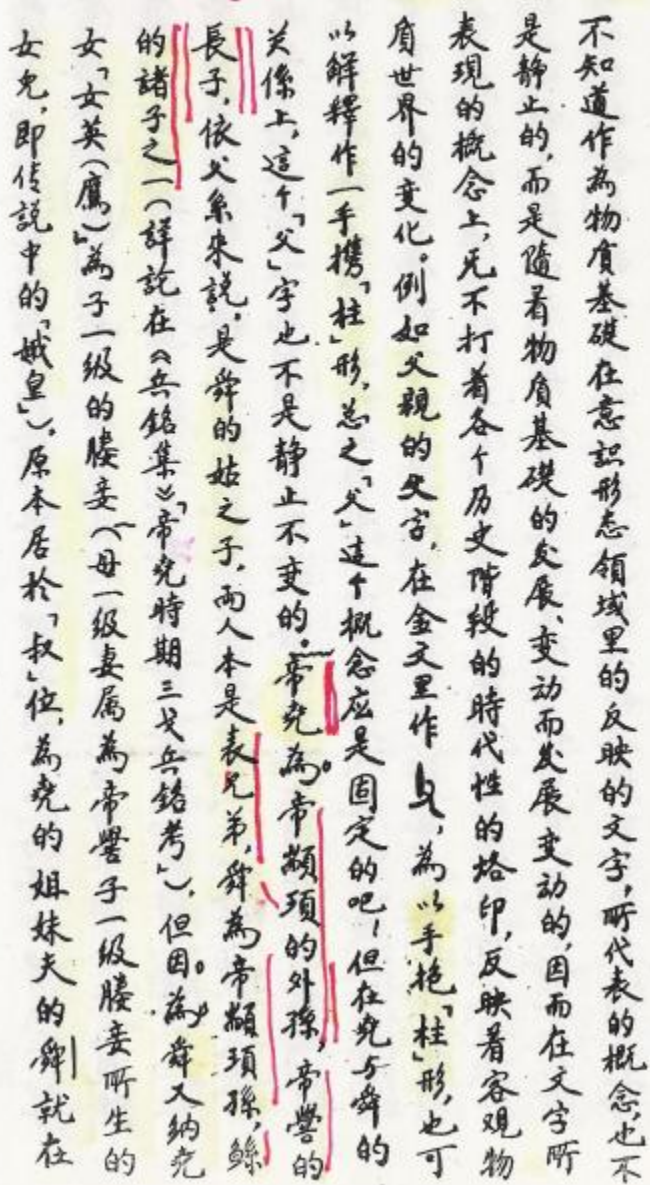 不知道作為物質基礎在意识形态領域里的反映的文字，所代表的概念，也不
是静止的，而是隨着物质基礎的发展、变动而发展变动的，因而在文字所
表現的概念上，无不打着各个历史階段的時代性的烙印，反映着客观物
质世界的变化。例如父親的父字，在金文里作，為以手抱「柱」形，也可
以解释作一手攜「柱」形，总之「父」这个概念应是固定的吧！但在尧与舜的
关係上，這个「父」字也不是静止不变的。帝尧為帝顓頊的外孫，帝嚳的
長子，依父系来説，是舜的姑之子，両人本是表兄弟，舜為帝顓頊孫，鲧
的諸子之一（詳説在《兵銘集》「帝尧時期三戈兵銘考」），但因為舜又納尧
女「女英（鷹）」為子一級的媵妾（母一級妻属為帝嚳子一級媵妾所生的
女儿，即传説中的「娥皇」），原本居於「叔」位，為尧的姐妹夫的舜就在